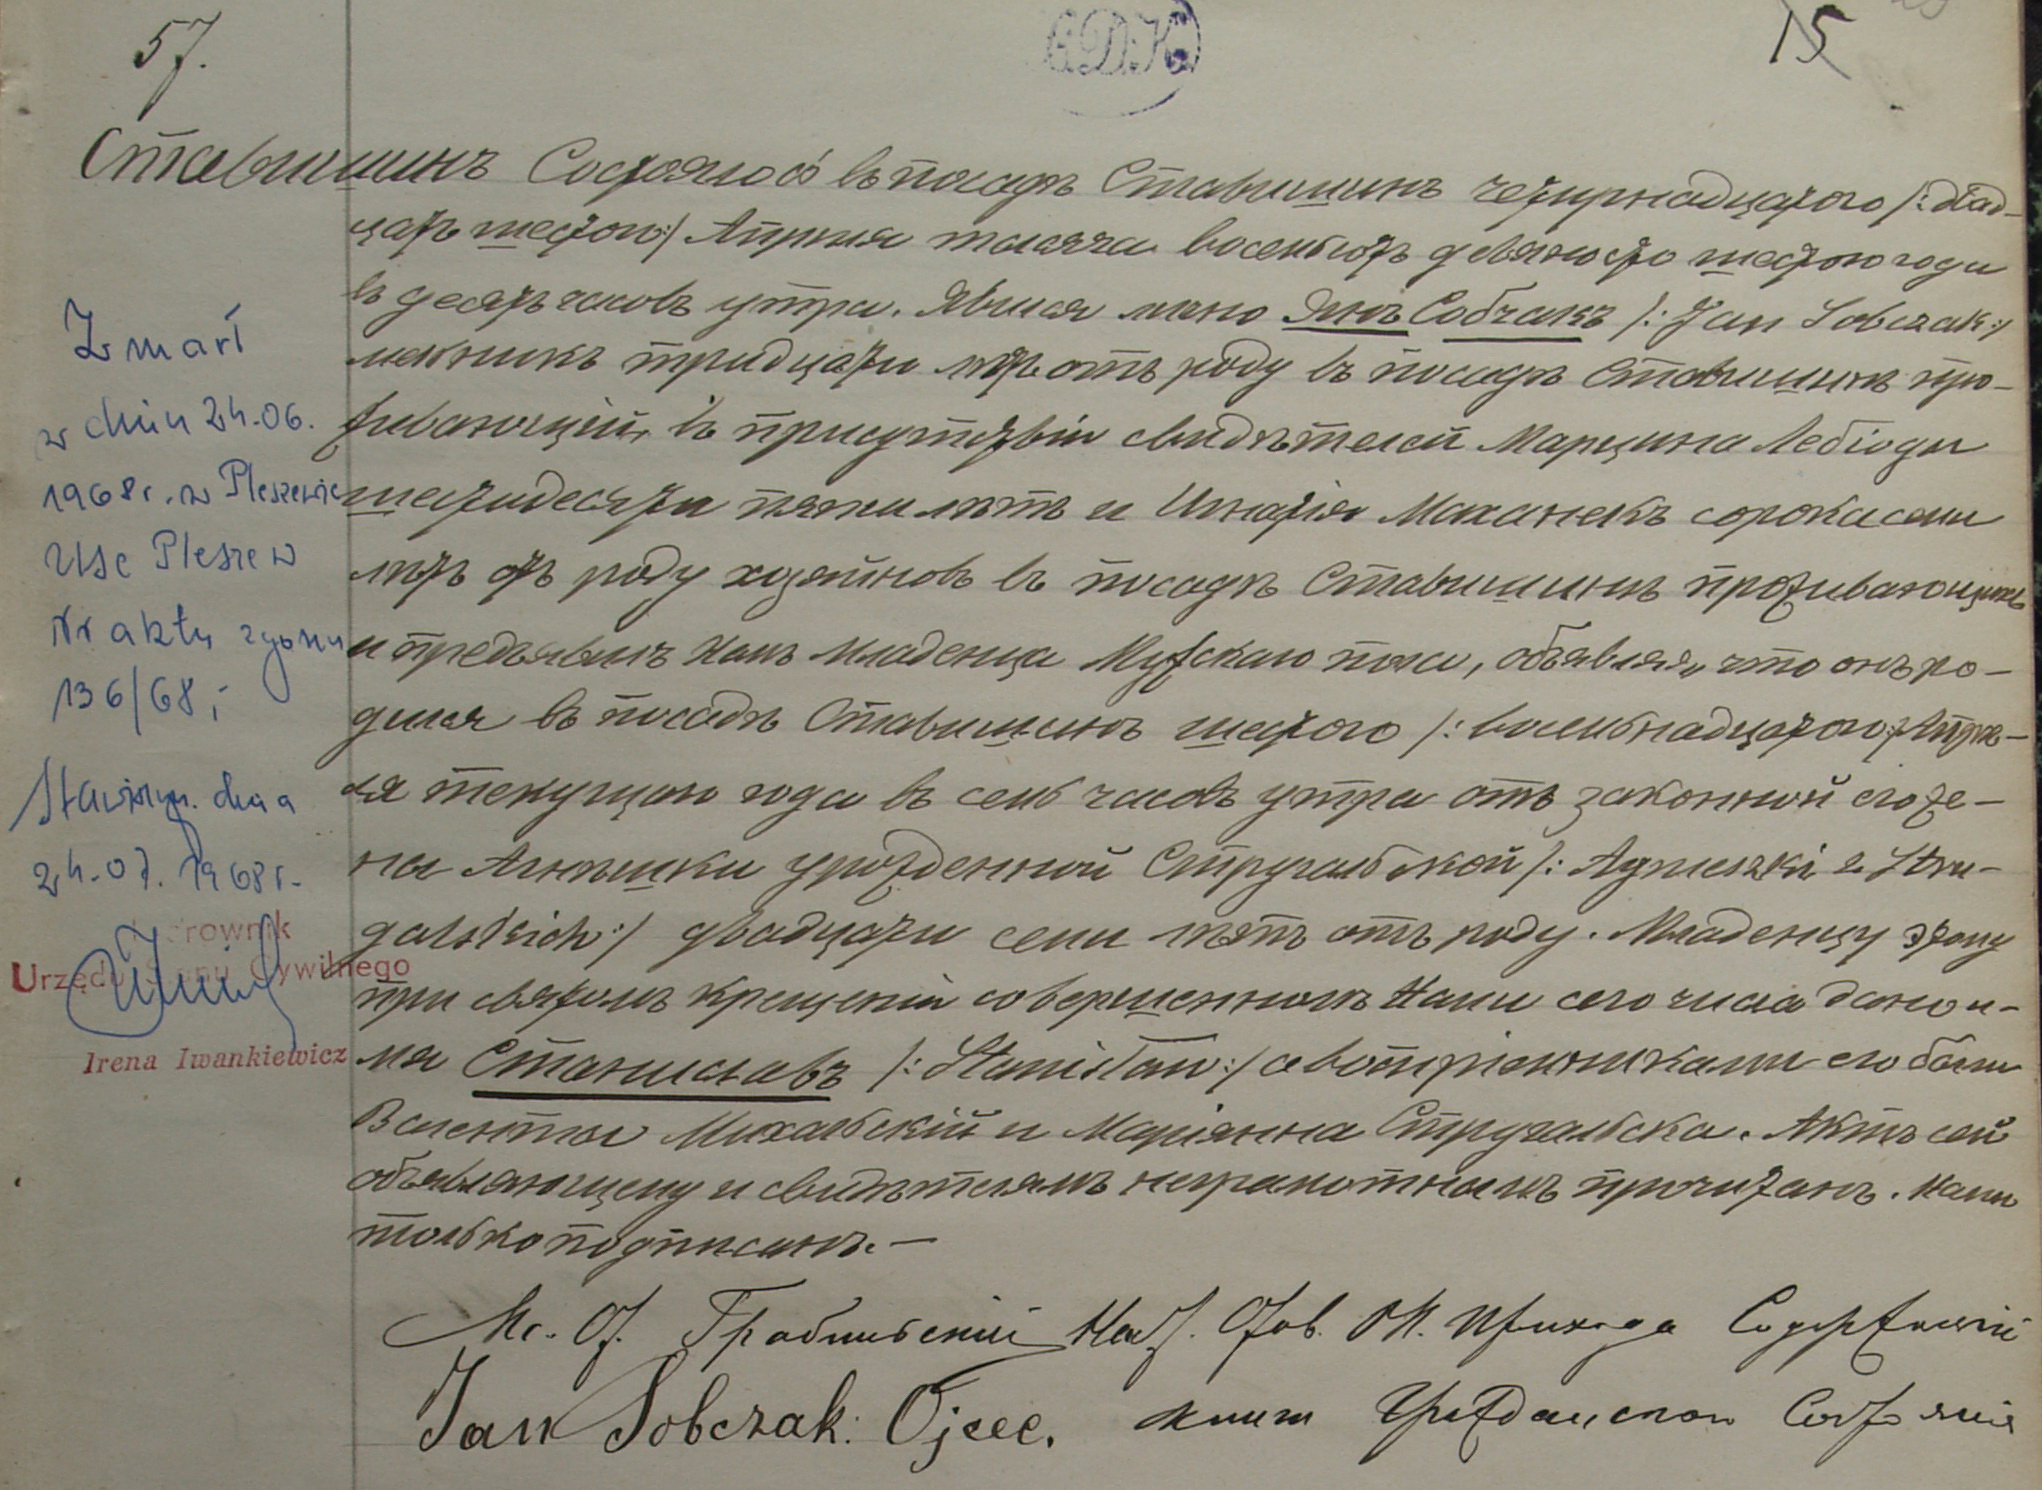 57.
15
Ставишинъ Состоялось въ посадѣ Ставишинѣ четырнадцатого /: двад-
цать шестого :/ Апрѣля тысяча восемьсотъ девяносто шестого года
въ десять часовъ утра. Явился лично Янъ Собчакъ /: Jan Sobczak :/
тридцати лѣтъ отъ роду въ посадѣ Ставишинѣ про-
живающій, въ присутствіи свидѣтелей Марцина Лебіоды
шестидесяти пяти лѣтъ и Игнатія Маханекъ сорока семи
лѣтъ отъ роду хозяйновъ въ посадѣ Ставишинѣ проживающихъ
и предъявилъ Намъ младенца мужскаго пола, объявляя, что онъ ро-
дился въ посадѣ Ставишинѣ шестого /: восемнадцатого :/ Апрѣ-
ля текущаго года въ семь часовъ утра отъ законной его же-
ны Агнѣшки урожденной Стругальской /: Agnieszki z Stru-
galskich :/ двадцати семи лѣтъ отъ роду. Младенцу этому
при святомъ крещеніи совершенномъ Нами сего числа дано и-
мя Станиславъ /: Stanisław :/ а воспріемниками его были
Валенты Михальскій и Маріянна Стругальска. Актъ сей
объявляющему и свидѣтелямъ неграмотнымъ прочитанъ. Нами
только подписанъ.—
Грабинскій Наст. Став. Прихода Содержащій
Jan Sobczak. Ojciec. книги Гражданского Состоянія
Zmarł
w dniu 24.06.
1968 r. w Pleszewie
USC Pleszew
Nr aktu zgonu
136/68;
Stawiszyn. dnia
24.07.1968 r.
Kierownik
Urzędu Stanu Cywilnego
Irena Iwankiewicz